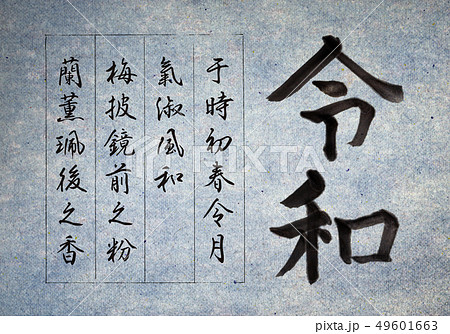 令和
于時初春令月
氣淑風和
梅披鏡前之粉
蘭薰珮後之香
PIXTA
pixta.jp - 49601663